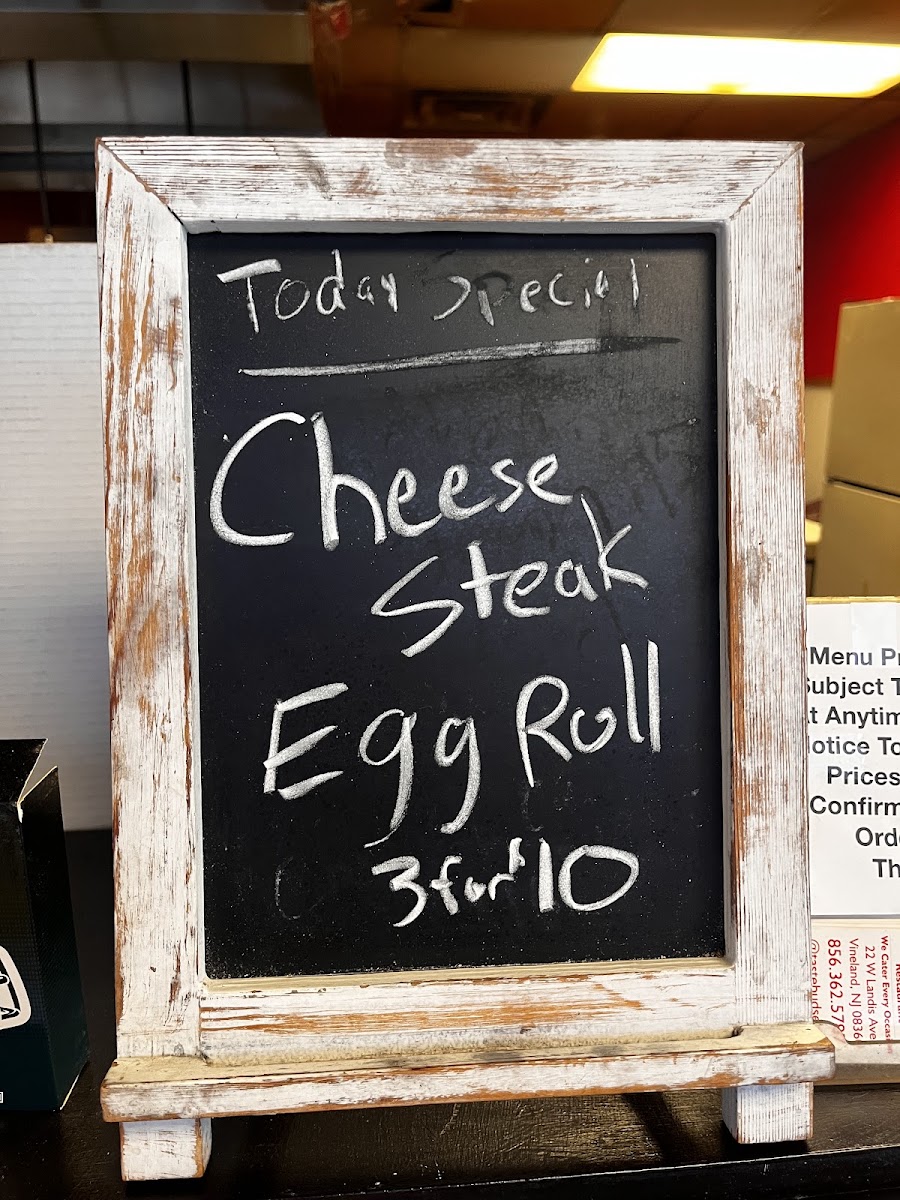 Today Special
Cheese
Steak
Egg Roll
3 for $10
Menu Pr
Subject T
t Anytim
otice To
Prices
Confirm
Orde
Th
We Cater Every Occas
22 W Landis Ave
Vineland, NJ 0836
856.362.578